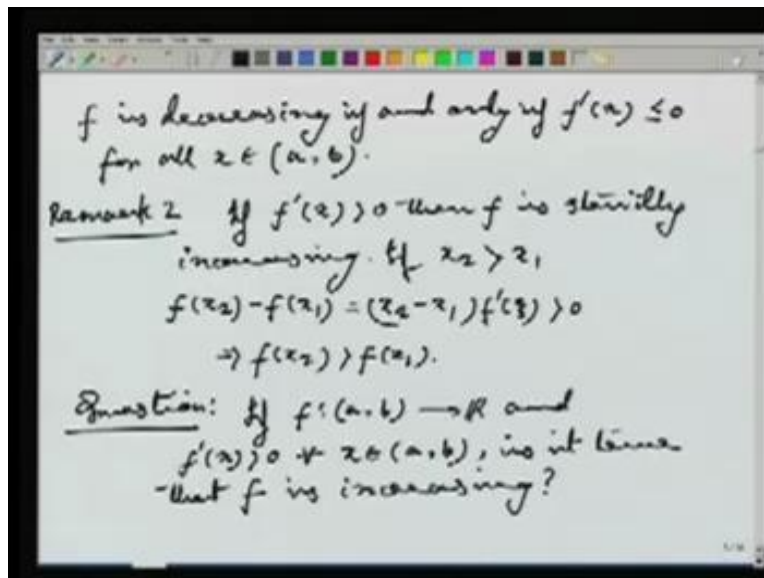 f is decreasing if and only if f'(x) ≤ 0
for all x ∈ (a, b).
Remark 2 If f'(x) > 0 then f is strictly
increasing. If x₂ > x₁
f(x₂) - f(x₁) = (x₂ - x₁) f'(ξ) > 0
⇒ f(x₂) > f(x₁).
Question: If f : (a, b) → ℝ and
f'(x) > 0 ∀ x ∈ (a, b), is it true
that f is increasing?